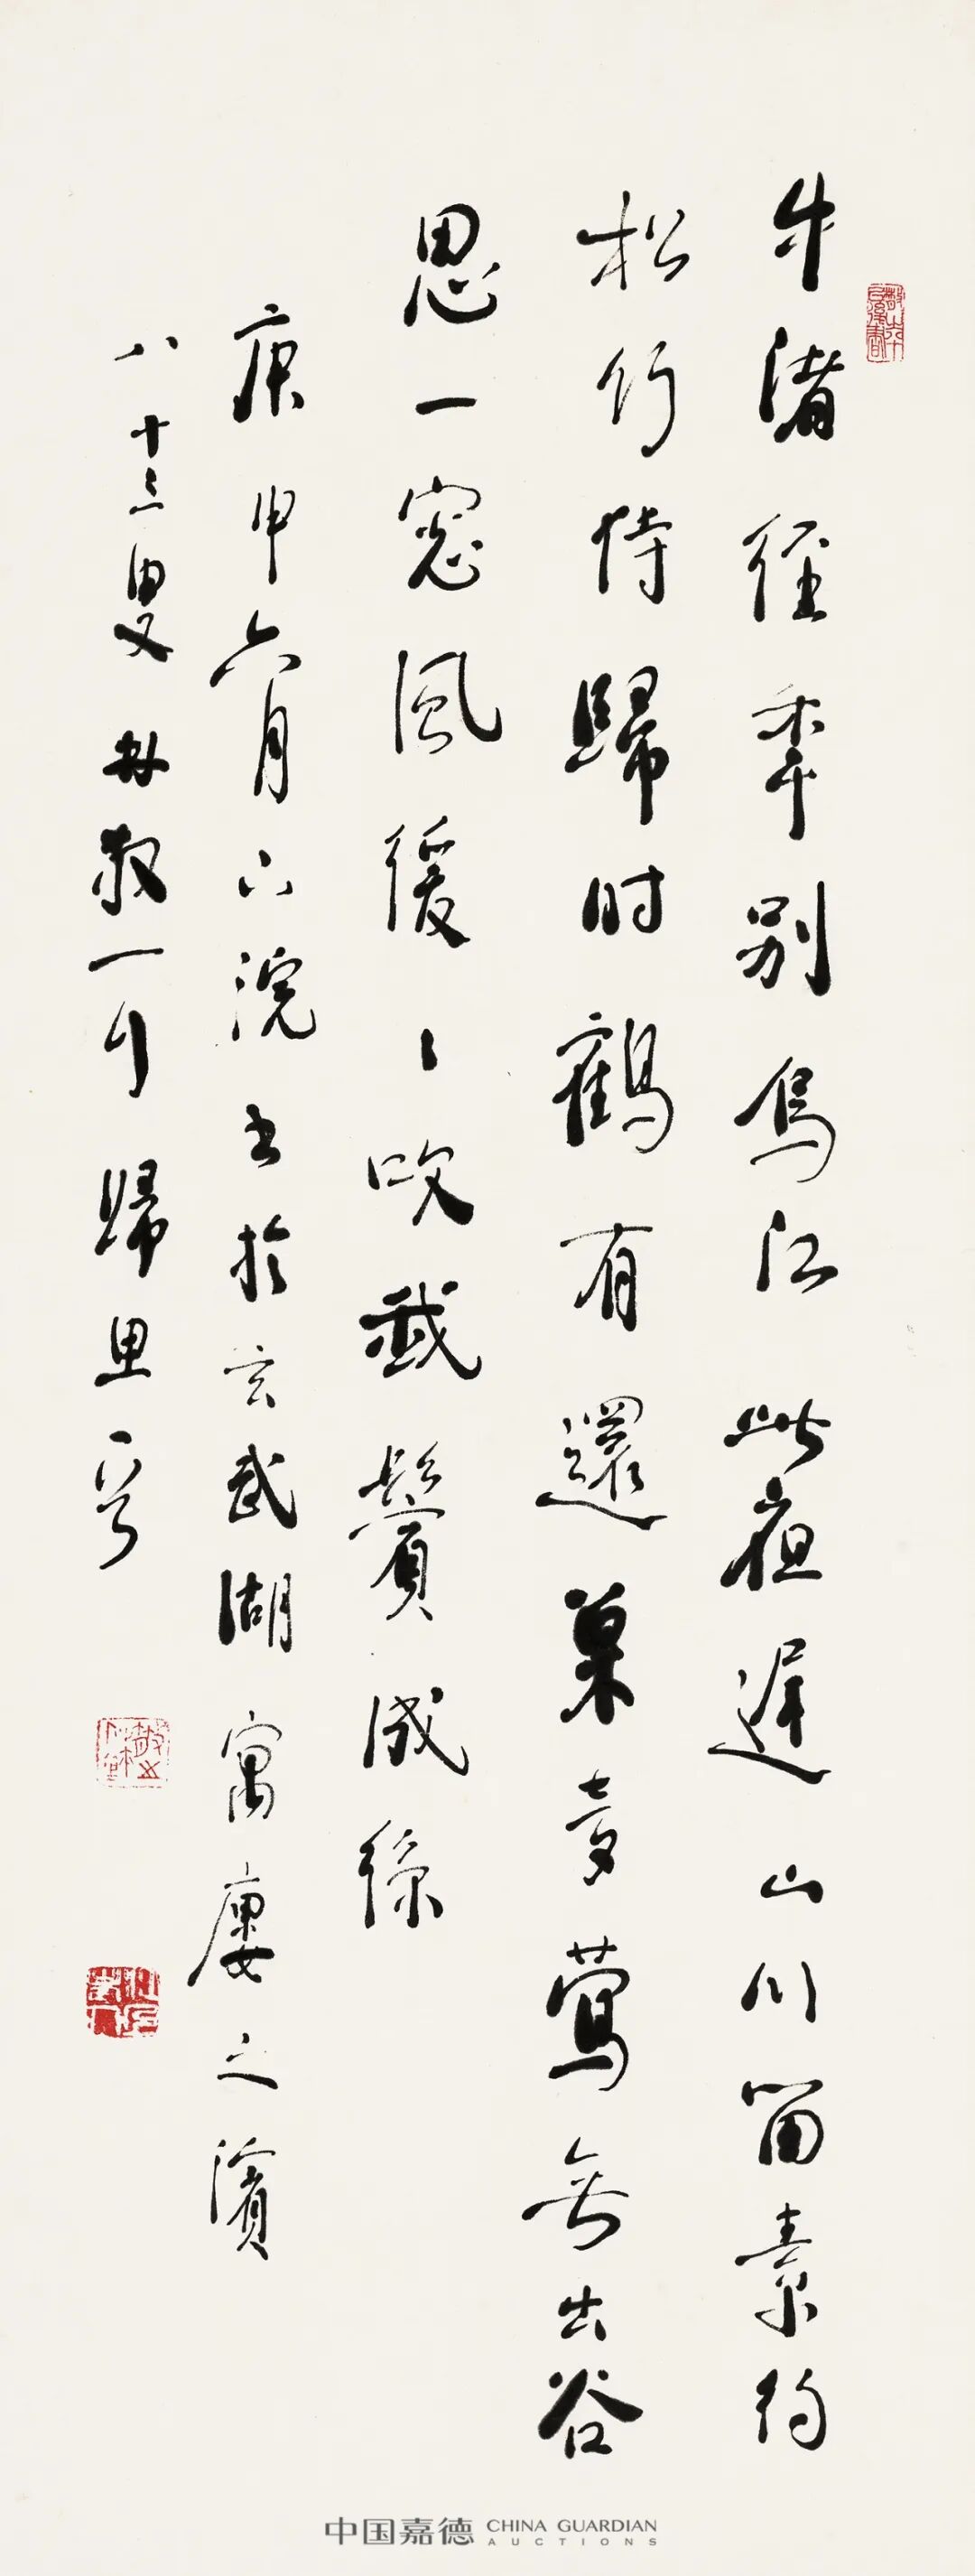 牛渚經年別烏江此夜遲山川留素約
松竹待歸時鶴有還巢夢鶯無出谷
思一窗風緩〻吹我鬢成絲
庚申六月六浣書於玄武湖寓廔之濱
八十三叟林散一月歸里
中国嘉德 CHINA GUARDIAN
AUCTIONS